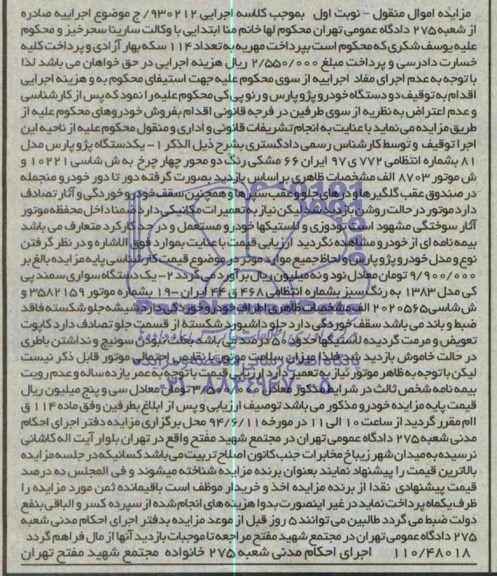 مزایده اموال منقول - نوبت اول بموجب کلاسه اجرایی ۹۳۰۲۱۲/ج موضوع اجراییه صادره
از شعبه ۲۷۵ دادگاه عمومی تهران محکوم لها خانم منا ابتدایی با وکالت سارینا سحرخیز و محکوم
علیه یوسف شکری که محکوم است بپرداخت مهریه به تعداد ۱۱۴ سکه بهار آزادی و پرداخت کلیه
خسارت دادرسی و پرداخت مبلغ ۲/۵۵۰/۰۰۰ ریال هزینه اجرایی در حق خواهان می باشد لذا
با توجه به عدم اجرای مفاد اجراییه از سوی محکوم علیه جهت استیفای محکوم به و هزینه اجرایی
اقدام به توقیف دو دستگاه خودرو پژو پارس و رنو پی کی محکوم علیه را نمود که پس از کارشناسی
و عدم اعتراض به نظریه از سوی طرفین در فرجه قانونی اقدام بفروش خودروهای محکوم علیه از
طریق مزایده می نماید با عنایت به انجام تشریفات قانونی و اداری و منقول محکوم علیه از ناحیه این
اجرا توقیف و توسط کارشناس رسمی دادگستری بشرح ذیل الذکر ۱- یکدستگاه پژو پارس مدل
۸۱ بشماره انتظامی ۷۷۲ ی ۹۷ ایران ۶۶ مشکی رنگ دو محور چهار چرخ به ش شاسی ۱۰۲۲۱ و
ش موتور ۸۷۰۳ الف مشخصات ظاهری بر اساس بازدید بصورت گرفته دور تا دور خودرو منجمله
در صندوق عقب گلگیرها و درهای جلو و عقب سپرها و همچنین سقف خودرو خوردگی و آثار تصادف
دارد موتور در حالت روشن بازدید شد لیکن نیاز به تعمیرات مکانیکی دارد ضمنا داخل محفظه موتور
آثار سوختگی مشهود است تودوزی و لاستیکها خودرو مستعمل و در حد کارکرد متعارف می باشد
بیمه نامه ای از خودرو مشاهده نگردید ارزیابی قیمت با عنایت بموارد فوق الاشاره و در نظر گرفتن
نوع و مدل خودرو پژو پارس و لحاظ جمیع موارد موثر در موضوع قیمت کارشناسی پایه مزایده بالغ بر
۹/۹۰۰/۰۰۰ تومان معادل نود و نه میلیون ریال برآورد می گردد ۲- یک دستگاه سواری سمند پی
کی مدل ۱۳۸۳ به رنگ سبز بشماره انتظامی ۴۶۸ ق ۴۴ ایران -۱۹ بشماره موتور ۳۵۸۲۱۵۹ و
ضبط و باند می باشد سقف خوردگی دارد جلو داشبورد شکسته از قسمت جلو تصادف دارد کاپوت
تعویض و مرمت گردیده لاستیکها حدود ۵۰ درصد می باشد
در حالت خاموش بازدید شد لذا میزان سلامت موتور نقایص احتمالی موتور قابل ذکر نیست
لیکن با توجه به ظاهر موتور نیاز به تعمیر دارد ارزیابی قیمت با توجه به عمر یازده ساله و عدم رویت
بیمه نامه شخص ثالث در شرایط مذکور معادل تومان معادل سی و پنج میلیون ریال
قیمت پایه مزایده خودرو مذکور می باشد توصیف ارزیابی و پس از ابلاغ بطرفین وفق ماده ۱۱۴ ق
اام مقرر گردید از ساعت ۱۰ الی ۱۱ در مورخه ۹۴/۶/۱۱ محل برگزاری مزایده دفتر اجرای احکام
مدنی شعبه ۲۷۵ دادگاه عمومی تهران در مجتمع شهید مفتح واقع در تهران بلوار آیت اله کاشانی
نرسیده به میدان شهر زیبا خ مخابرات جنب کانون اصلاح تربیت می باشد کسانیکه در جلسه مزایده
بالاترین قیمت را پیشنهاد نمایند بعنوان برنده مزایده شناخته میشوند و فی المجلس ده درصد
قیمت پیشنهادی نقدا از برنده مزایده اخذ و خریدار موظف است باقیمانده ثمن مورد مزایده را
ظرف یکماه پرداخت نماید در غیر اینصورت بدوا هزینه های انجام شده از سپرده کسر و الباقی بنفع
دولت ضبط می گردد طالبین می توانند ۵ روز قبل از موعد مزایده بدفتر اجرای احکام مدنی شعبه
۲۷۵ دادگاه عمومی تهران در مجتمع شهید مفتح مراجعه تا موجبات بازدید آنها از مال فراهم گردد
۱۱۰/۴۸۰۱۸ اجرای احکام مدنی شعبه ۲۷۵ خانواده مجتمع شهید مفتح تهران